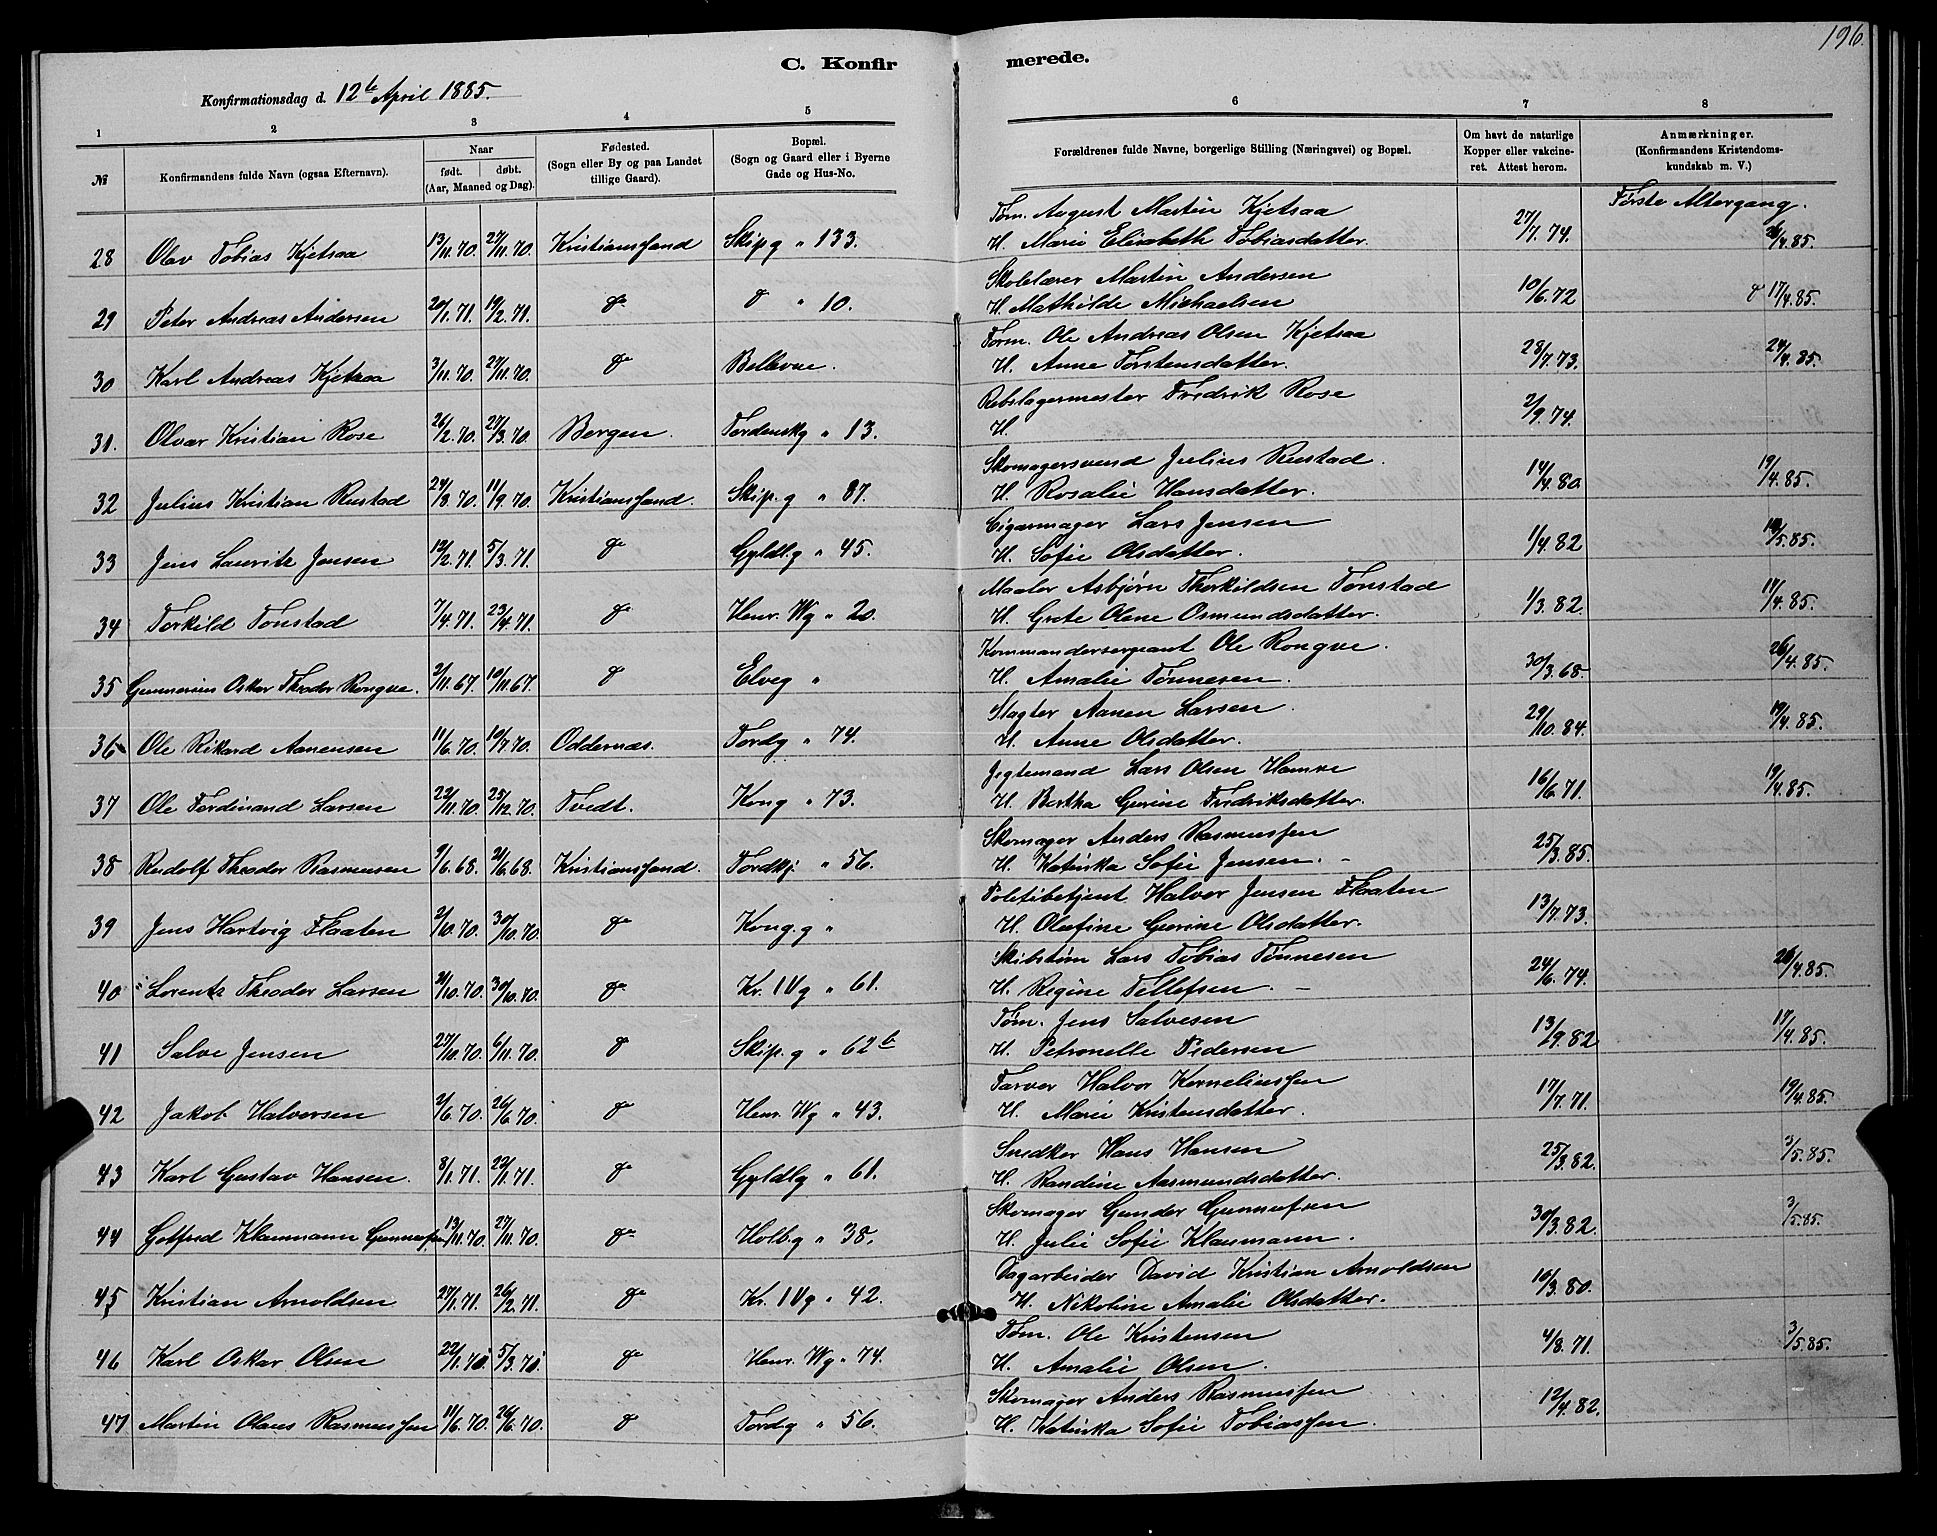 196.
C. Konfirmerede.
Konfirmationsdag d. 12te April 1885.
1 2 3 4 5 6 7 8
№ Konfirmandens fulde Navn (ogsaa Efternavn). Naar født. døbt. (Aar, Maaned og Dag). Fødested. (Sogn eller By og paa Landet tillige Gaard). Bopæl. (Sogn og Gaard eller i Byerne Gade og Hus-No. Forældrenes fulde Navne, borgerlige Stilling (Næringsvei) og Bopæl. Om havt de naturlige Kopper eller vakcineret. Attest herom. Anmærkninger. (Konfirmandens Kristendomskundskab m. V.)
Første Altergang.
Tøm. August Martin Kjetsaa
28 Olav Tobias Kjetsaa 13/11.70. 27/11.70. Kristianssand Skip.g " 133. H. Marie Elisabeth Tobiasdatter. 27/7.74. 26/4.85.
Skolelærer Martin Andersen
29 Peter Andreas Andersen 20/1.71. 19/2.71. do do " 10. H. Mathilde Michaelsen 10/6.72 do 17/4.85.
Tøm. Ole Andreas Olsen Kjetsaa
30 Karl Andreas Kjetsaa 3/11.70. 27/11.70. do Bellevue. H. Anne Torstensdatter. 28/7.73. 24/4.85.
Rebslagermester Fredrik Rose
31. Olvar Kristian Rose 26/2.70. 27/3.70. Bergen. Tordenskg " 13. H. 2/9.74.
Skomagersvend Julius Rustad.
32 Julius Kristian Rustad 24/8.70. 11/9.70. Kristianssand. Skip.g " 87. H. Rosalie Hansdatter. 14/4.80. 19/4.85.
Cigarmager Lars Jensen
33 Jens Lauritz Jensen 12/2.71. 5/3.71. do Gyldl.g " 45. H. Sofie Olsdatter. 1/4.82 /5.85.
Maaler Asbjørn Thorkildsen Tonstad
34 Torkild Tonstad 7/4.71. 23/4.71. do Henr. Wg " 20. H. Grete Olene Osmundsdatter. 1/3.82. 17/4.85.
Kommandersergeant Ole Rongve.
35 Gunnerius Oskar Theodor Rongve. 2/11.67. 10/11.67. do Elveg " H. Amalie Tønnesen. 30/3.68. 26/4.85.
Slagter Aanen Larsen.
36 Ole Rikard Aanensen 11/6.70. 10/7.70. Oddernæs. Tordg " 74. H. Anne Olsdatter. 29/10.84. 19/4.85.
Jegtemand Lars Olsen Hamre
37 Ole Ferdinand Larsen 22/11.70. 25/12.70. Tvedt. Kong " 73. H. Bertha Gurine Fredriksdatter. 16/6.71. 19/4.85.
Skomager Anders Rasmussen
38 Rudolf Theodor Rasmussen 9/6.68. 21/6.68. Kristianssand. Tordkj. " 56. H. Katinka Sofie Jensen. - 25/3.85.
Politibetjent Halvor Jensen Flaaten
39 Jens Hartvig Flaaten 2/10.70. 30/10.70. do Kong.g " H. Olufine Gurine Olsdatter. 13/7.73.
Skibstøm Lars Tobias Tønnesen
40 Lorents Theodor Larsen 21/10.70. 30/10.70. do Kr. IVg " 61. H. Regine Tellefsen. - 24/6.74. 26/4.85.
Tøm. Jens Salvesen
41 Salve Jensen 27/10.70. 6/11.70. do Skip.g " 62b H. Petronelle Pedersen 13/9.82 17/4.85.
Farver Halvor Korneliussen
42 Jakob Halvorsen 2/6.70. 26/6.70. do Henr. Wg " 43. H. Marie Kristensdatter. 17/7.71. 19/4.85.
Snedker Hans Hansen
43 Karl Gustav Hansen. 8/1.71. 22/1.71. do Gyldlg " 61. H. Randine Aasmundsdatter. 25/3.82. 3/5.85.
Skomager Gunder Gunnufsen
44 Gotfred Klaumann Gunnufsen 13/11.70. 27/11.70. do Holb.g " 38. H. Julie Sofie Klaumann. 30/3.82. 3/5.85.
Dagarbeider David Kristian Arnoldsen
45 Kristian Arnoldsen 27/1.71. 26/2.71. do Kr. IVg " 42. H. Nikoline Amalie Olsdatter. 16/3.80.
Tøm. Ole Kristensen
46 Karl Oskar Olsen 22/1.70. 5/3.70. do Henr. Wg " 74. H. Amalie Olsen. 4/8.71. 3/5.85.
Skomager Anders Rasmussen
47 Martin Olaus Rasmussen 11/6.70. 26/6.70. do Tordg " 56. H. Katinka Sofie Tobiassen. 12/4.82.